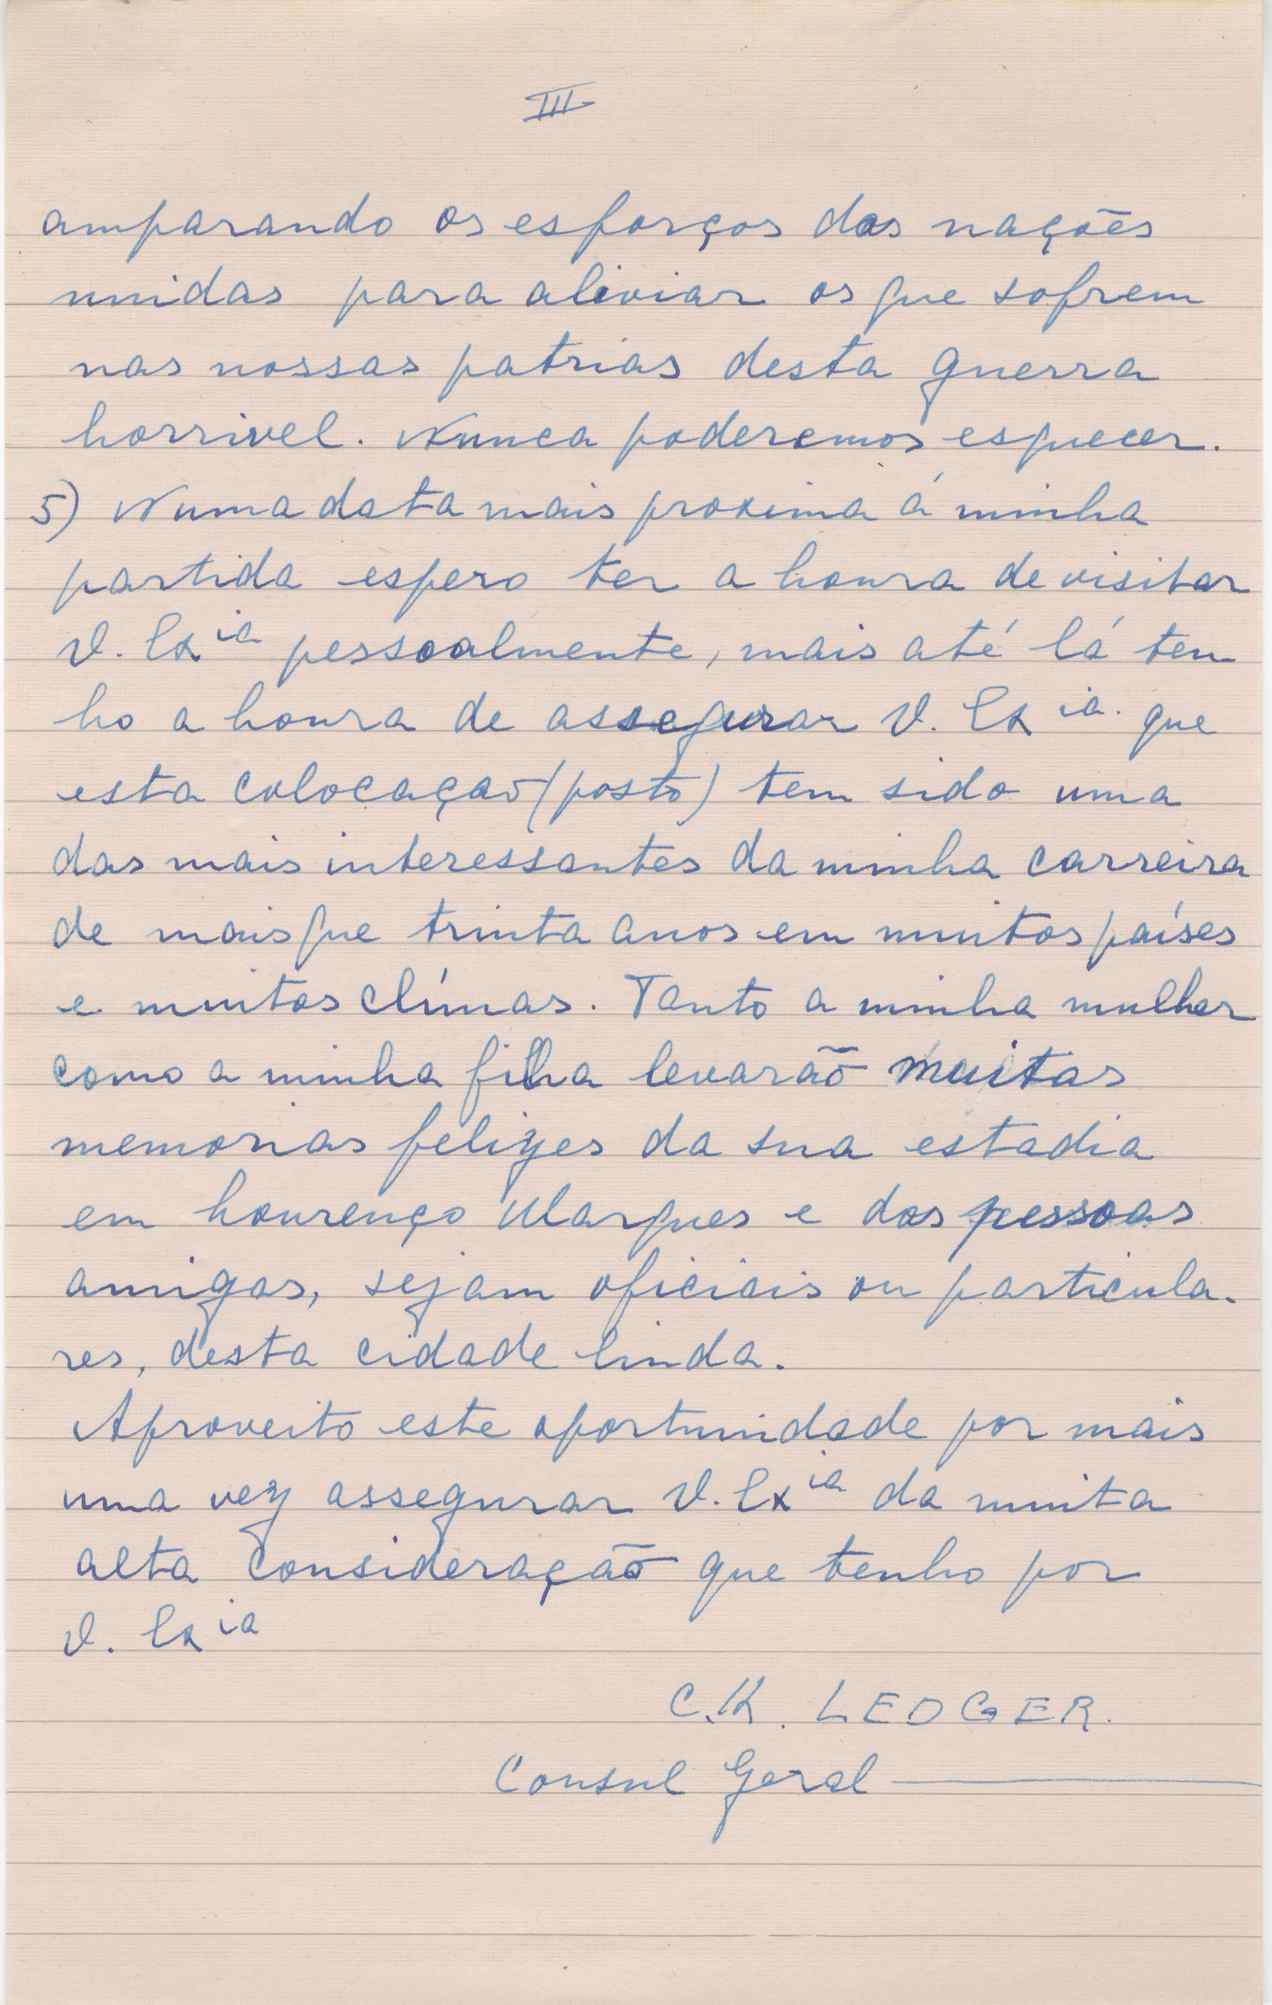 III
amparando os esforços das nações
unidas para aliviar os que sofrem
nas nossas patrias desta guerra
horrivel. Nunca poderemos esquecer.
5) Numa data mais proxima á minha
partida espero ter a honra de visitar
V. Ex ia pessoalmente, mais até lá ten
ho a honra de assegurar V. Ex ia. que
esta colocação (posto) tem sido uma
das mais interessantes da minha carreira
de mais que trinta anos em muitos países
e muitos clímas. Tanto a minha mulher
como a minha filha levarão muitas
memorias felizes da sua estadia
em Lourenço Marques e das pessoas
amigas, sejam oficiais ou particula-
res, desta cidade linda.
Aproveito este oportunidade por mais
uma vez assegurar V. Ex ia da muita
alta consideração que tenho por
V. Ex ia
C.K. LEDGER.
Consul Geral